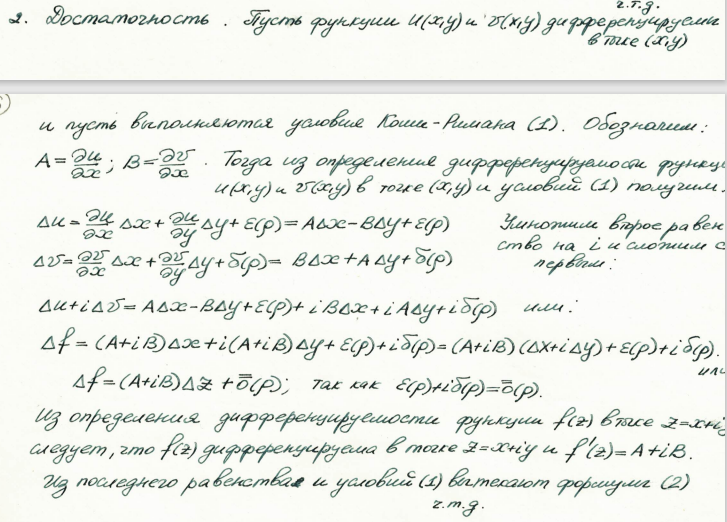 ч.т.д.
2. Достаточность. Пусть функции u(x,y) и v(x,y) дифференцируемы
в точке (x,y)
и пусть выполняются условия Коши-Римана (1). Обозначим:
A=∂u/∂x; B=∂v/∂x. Тогда из определения дифференцируемости функци
u(x,y) и v(x,y) в точке (x,y) и условий (1) получим.
Δu=∂u/∂x Δx+∂u/∂y Δy+ε(ρ)=AΔx-BΔy+ε(ρ) Умножим второе равен
Δv=∂v/∂x Δx+∂v/∂y Δy+δ(ρ)= BΔx+AΔy+δ(ρ) ство на i и сложим с
первым:
Δu+iΔv=AΔx-BΔy+ε(ρ)+iBΔx+iAΔy+iδ(ρ) или:
Δf=(A+iB)Δx+i(A+iB)Δy+ε(ρ)+iδ(ρ)=(A+iB)(Δx+iΔy)+ε(ρ)+iδ(ρ).
или
Δf=(A+iB)Δz+o̿(ρ); так как ε(ρ)+iδ(ρ)=o̿(ρ).
Из определения дифференцируемости функции f(z) в точке z=x+iy
следует, что f(z) дифференцируема в точке z=x+iy и f'(z)=A+iB.
Из последнего равенства и условий (1) вытекают формулы (2)
ч.т.д.